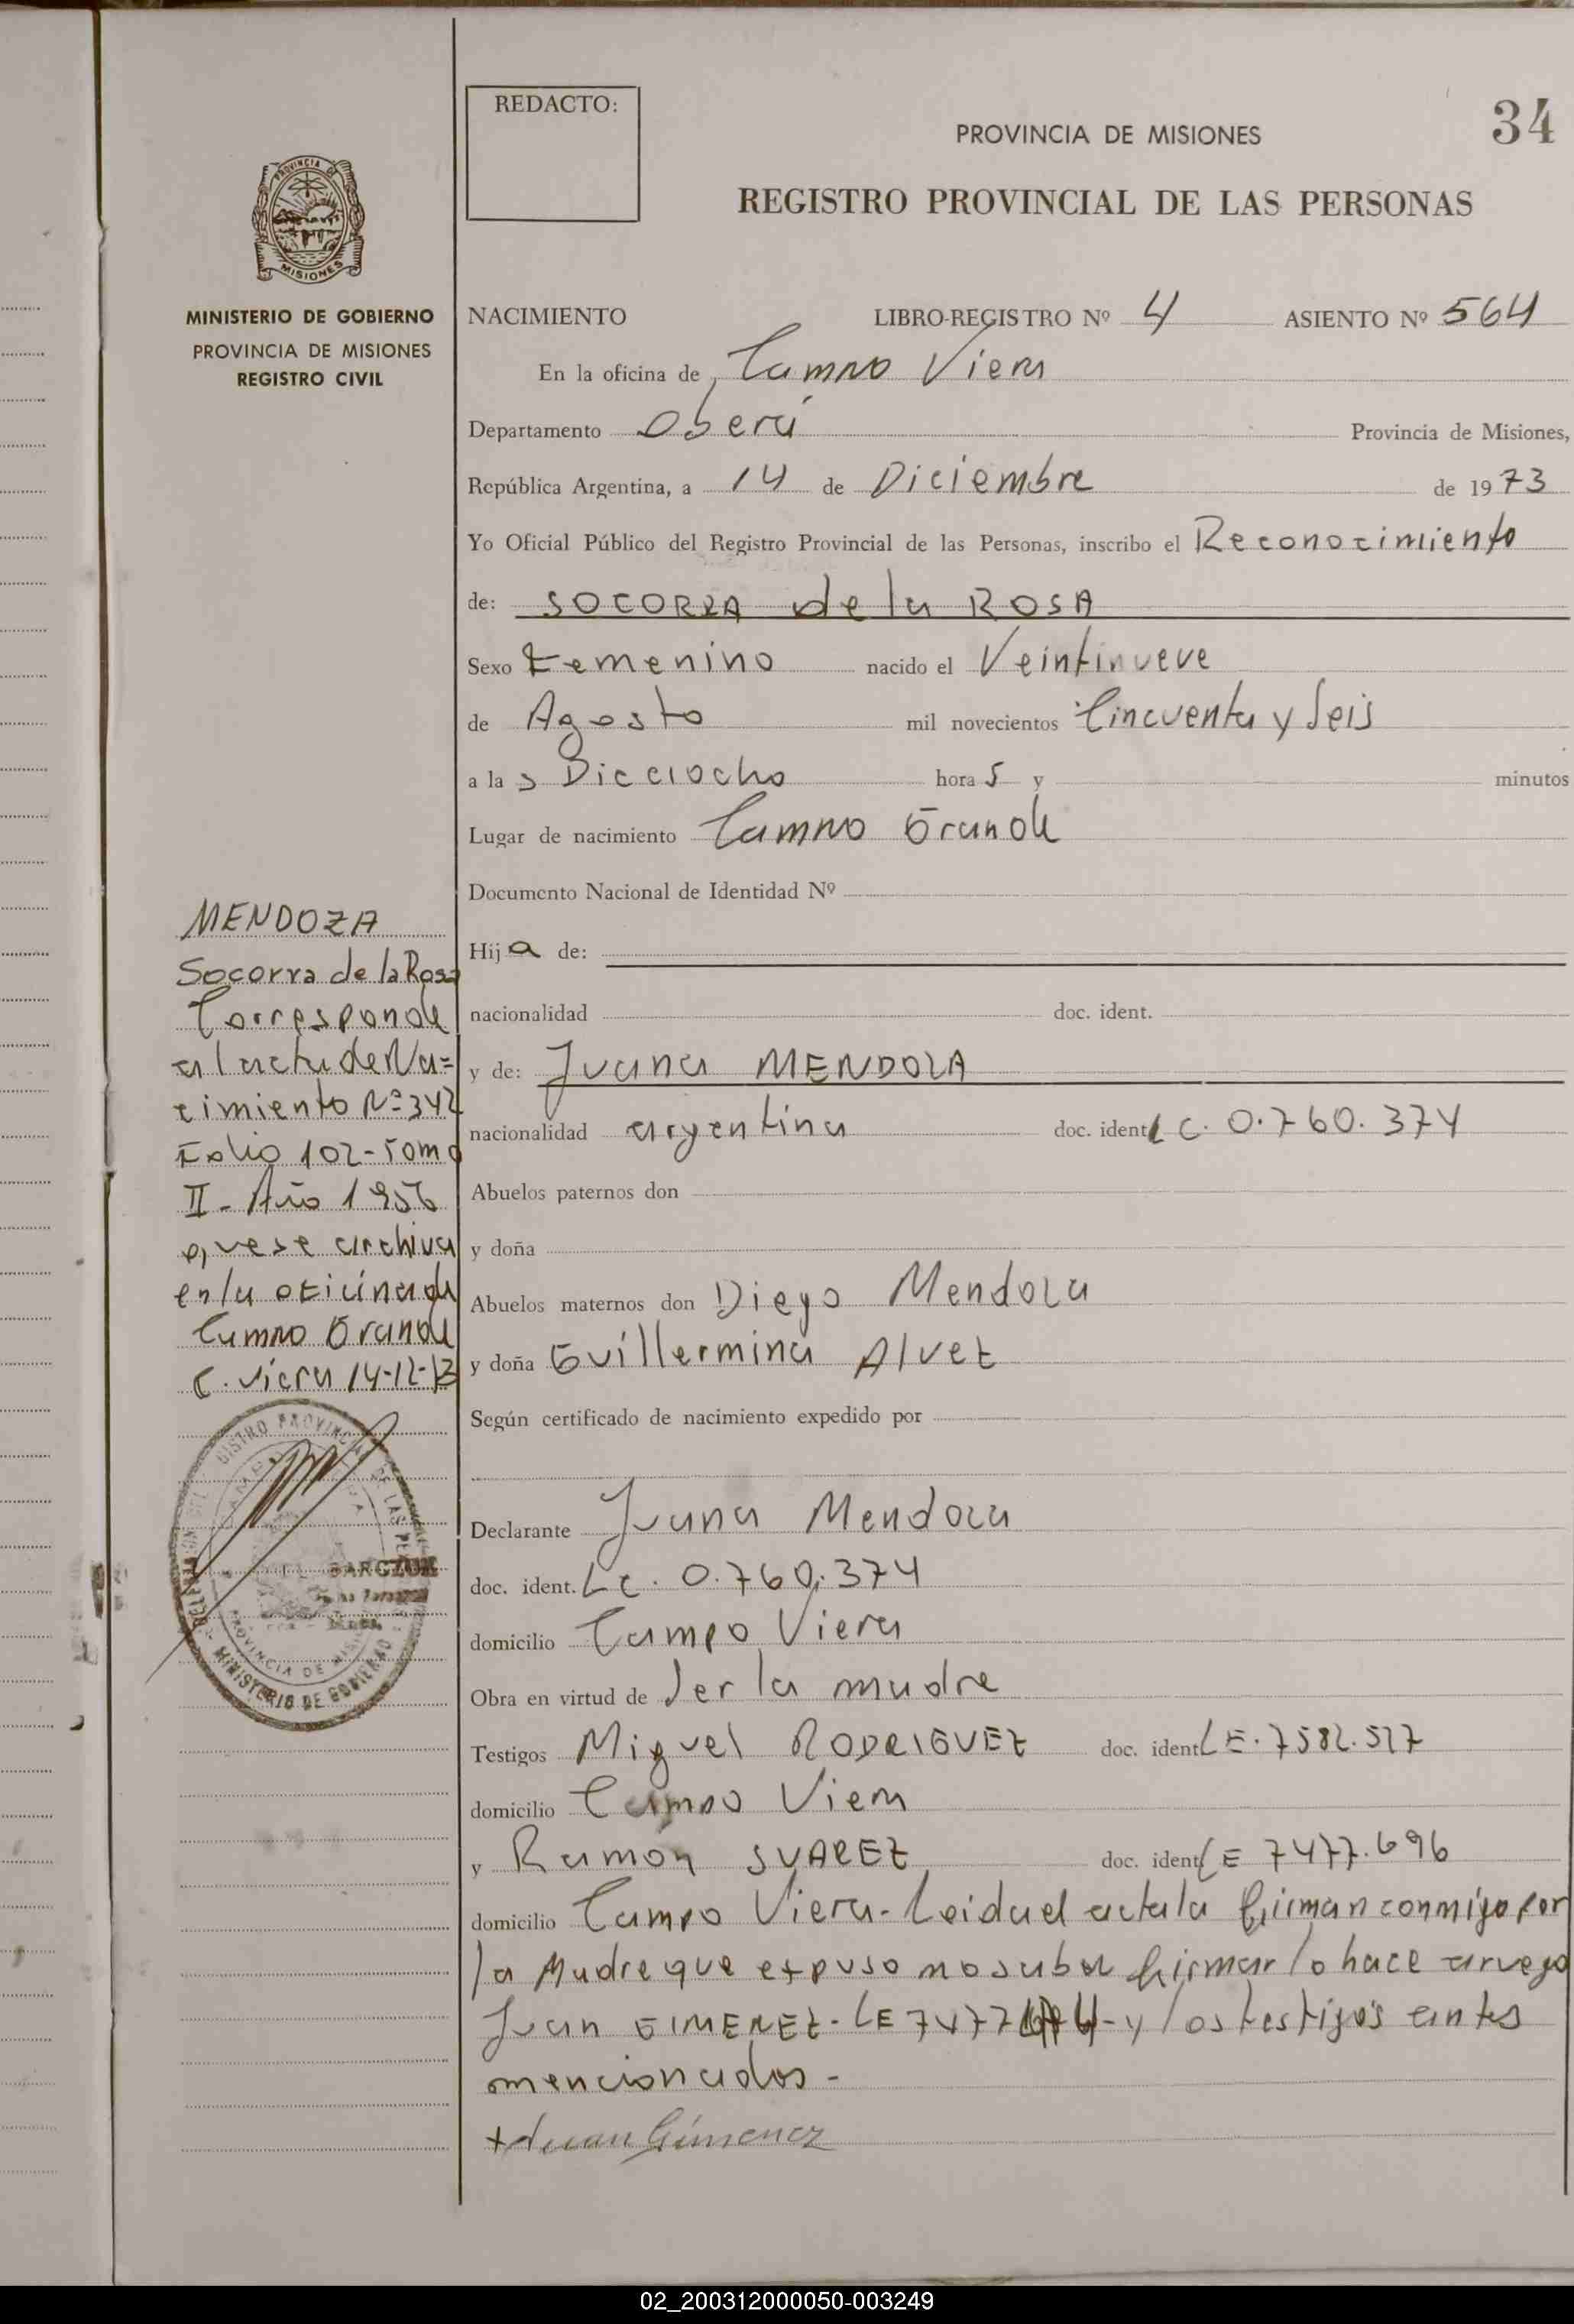 34
REDACTO:
PROVINCIA DE MISIONES
REGISTRO PROVINCIAL DE LAS PERSONAS
PROVINCIA DE
MISIONES
MINISTERIO DE GOBIERNO
PROVINCIA DE MISIONES
REGISTRO CIVIL
NACIMIENTO LIBRO-REGISTRO Nº 4 ASIENTO Nº 564
En la oficina de Campo Viera
Departamento Oberá Provincia de Misiones,
República Argentina, a 14 de Diciembre de 1973
Yo Oficial Público del Registro Provincial de las Personas, inscribo el Reconocimiento
de: SOCORRA de la ROSA
Sexo Femenino nacido el Veintinueve
de Agosto mil novecientos Cincuenta y Seis
a la s Dieciocho hora s y minutos
Lugar de nacimiento Campo Grande
Documento Nacional de Identidad Nº
Hij a de:
nacionalidad doc. ident.
y de: Juana MENDOZA
nacionalidad argentina doc. ident LC. 0.760.374
Abuelos paternos don
y doña
Abuelos maternos don Diego Mendoza
y doña Guillermina Alvez
Según certificado de nacimiento expedido por
Declarante Juana Mendoza
doc. ident. Lc. 0.760.374
domicilio Campo Viera
Obra en virtud de ser la madre
Testigos Miguel RODRIGUEZ doc. ident LE. 7582.527
domicilio Campo Viera
y Ramón SUAREZ doc. ident LE 7477.696
domicilio Campo Viera - Leida el acta la firman conmigo por
la Madre que expuso no saber firmar lo hace a ruego
Juan GIMENEZ - LE 7477 - y los testigos antes
mencionados -
+ Juan Gimenez
MENDOZA
Socorra de la Rosa
Corresponde
al acta de Na=
cimiento Nº 342
Folio 102 - Tomo
II - Año 1956
que se archiva
en la oficina de
Campo Grande
C. Viera 14-12-73
PROVINCIAL DE LAS
PROVINCIA DE MISIONES
MINISTERIO DE GOBIERNO
02_200312000050-003249